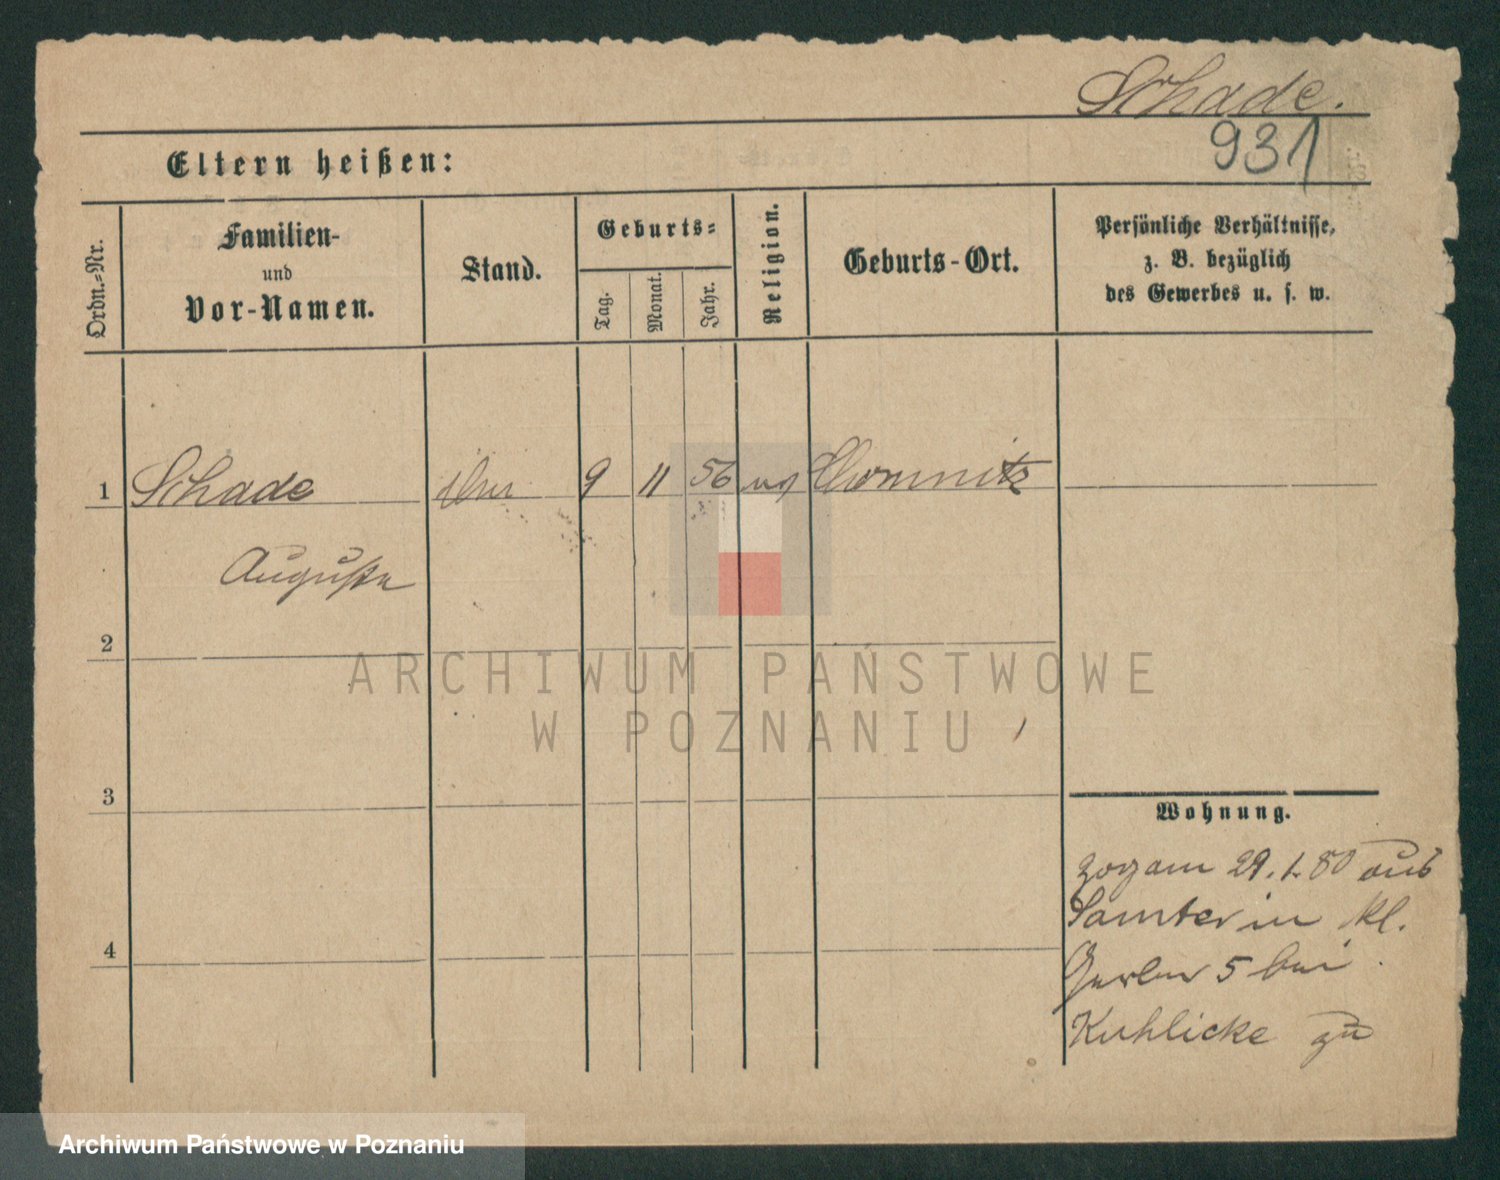 Schade.
931
Eltern heißen:
Ordn.-Nr.
Familien-
und
Vor-Namen.
Stand.
Geburts-
Tag.
Monat.
Jahr.
Religion.
Geburts-Ort.
Persönliche Verhältnisse,
z. B. bezüglich
des Gewerbes u. s. w.
1 Schade 9 11 56
Auguste
2
3
4
Wohnung.
zog am 29. 1. 80 aus
Samter in kl.
Gerber 5 bei
Kuhlicke zu
ARCHIWUM PAŃSTWOWE
W POZNANIU
Archiwum Państwowe w Poznaniu